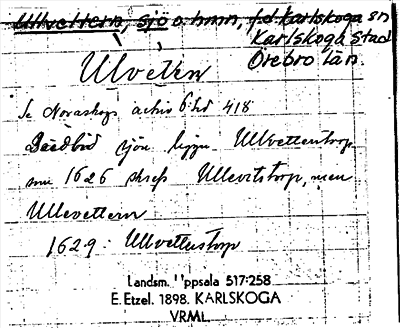 Ullvettern, sjö o. hmn, f.d. Karlskoga sn
Karlskoga stad
Örebro län.
Ulvetten
Se Noraskogs arkiv 6:hd 418
sjön ligger Ullvettentorp
som 1626 skrefs Ullevitstorp, men
Ullevettern
1629 Ullvettustorp
Landsm. Uppsala 517:258
E. Etzel. 1898. KARLSKOGA
VRML.